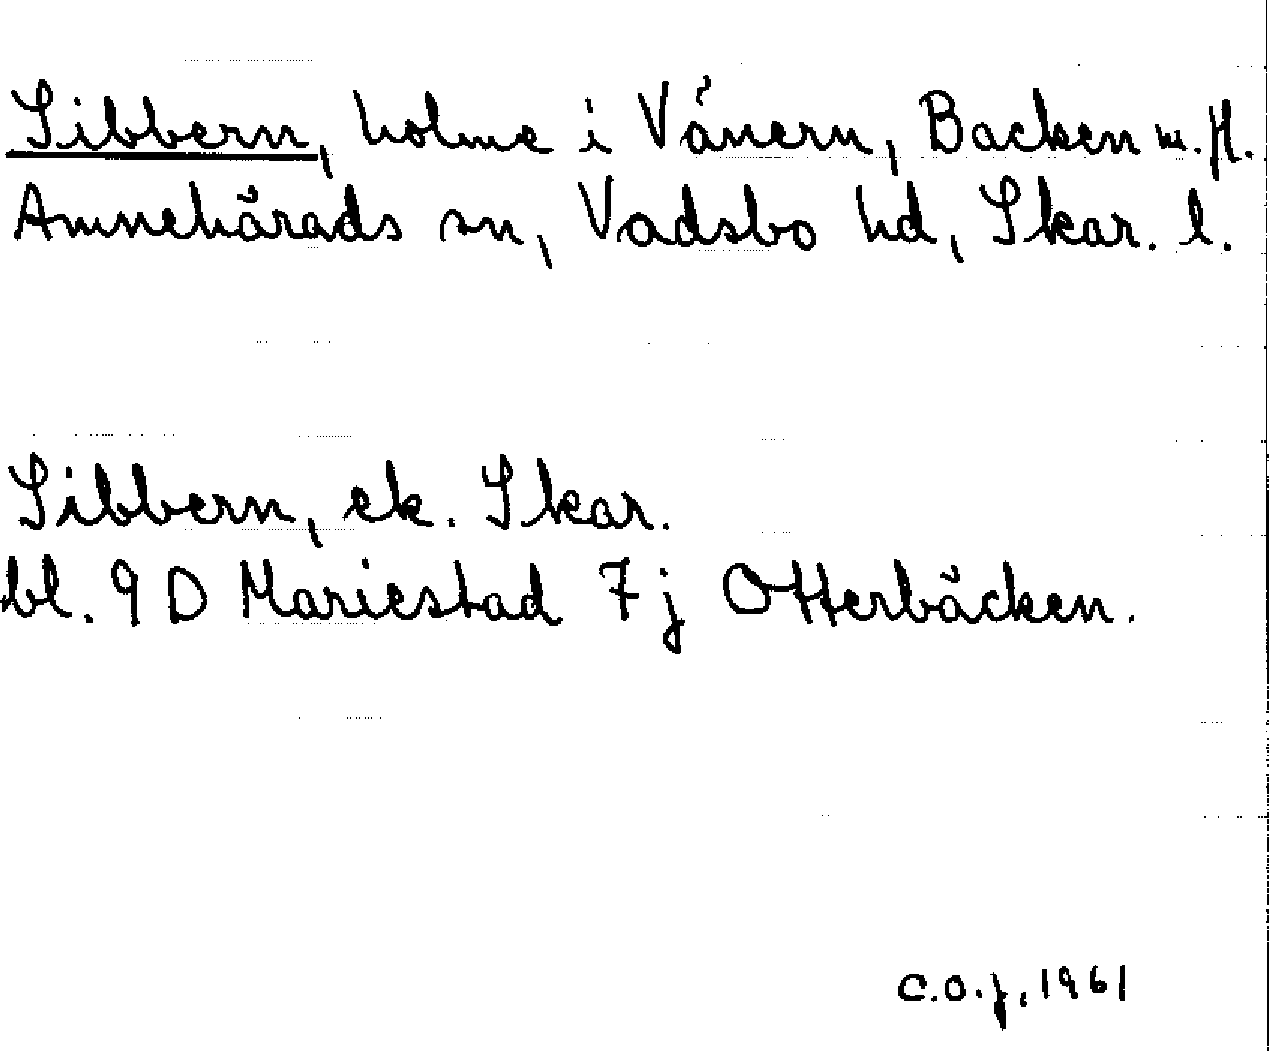 Sibbern, holme i Vänern, Backen m. fl.
Amnehärads sn, Vadsbo hd, Skar. l.
Sibbern, ek. Skar.
bl. 9 D Mariestad 7 j Otterbäcken.
C.O.J. 1961